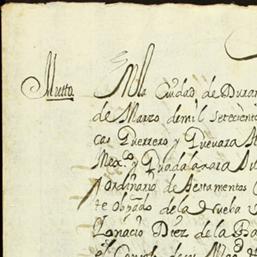 Autto.
En la Ciudad de Duran
de Marzo de mil setecient
cas Guerrero y Guevara
Mexco. y Guadalaxara Au
y ordinario de testamentos
te obpado. de la Nueva
Ignacio Diez de la Ba
el Consejo de su Magd.